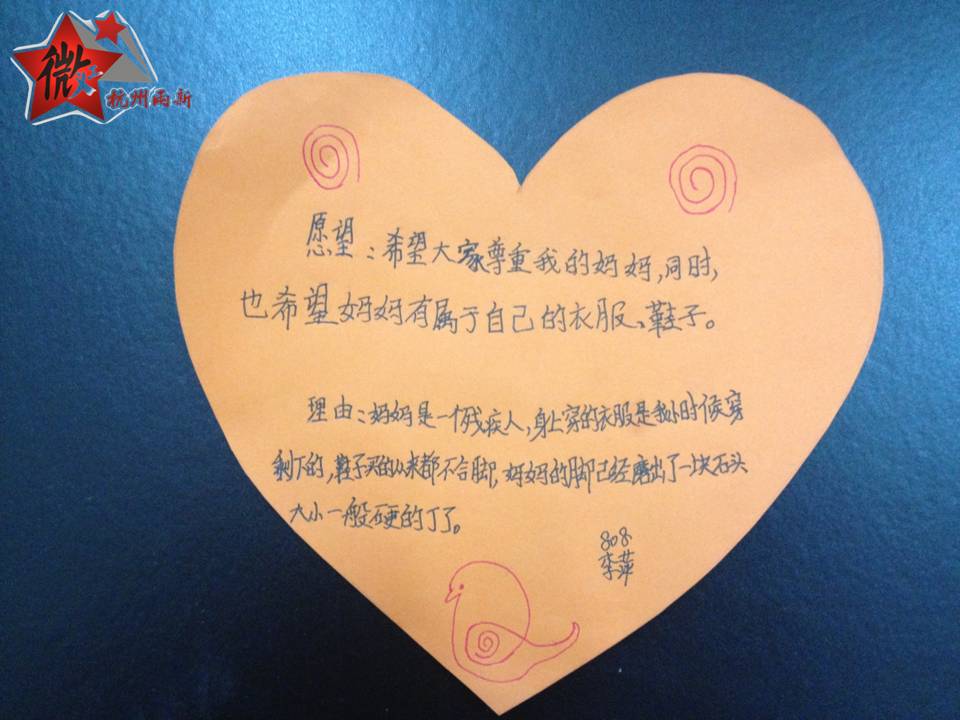 微
杭州雨新
愿望：希望大家尊重我的妈妈,同时,
也希望妈妈有属于自己的衣服、鞋子。
理由：妈妈是一个残疾人,身上穿的衣服是我小时候穿
剩下的,鞋子买的从来都不合脚,妈妈的脚已经磨出了一块石头
大小一般硬的丁了。
808
李萍